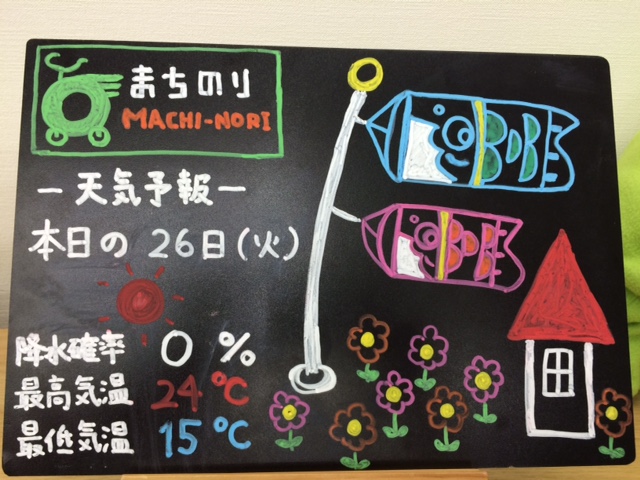 まちのり
MACHI-NORI
－天気予報－
本日の 26日(火)
降水確率 0 %
最高気温 24℃
最低気温 15℃